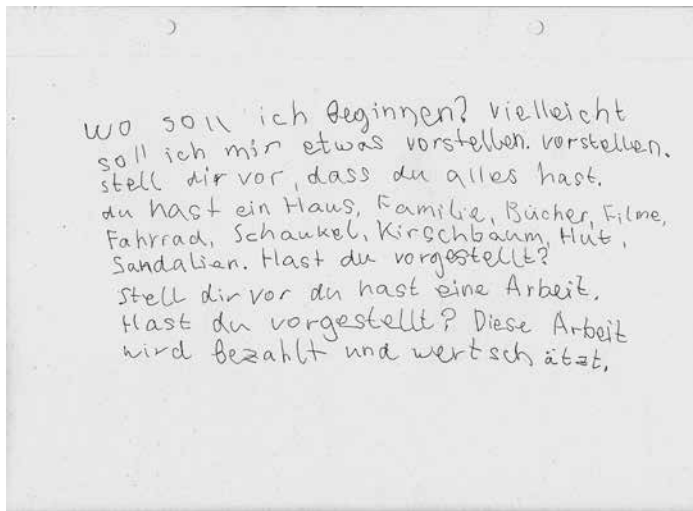 wo soll ich beginnen? vielleicht
soll ich mir etwas vorstellen. vorstellen.
stell dir vor, dass du alles hast.
du hast ein Haus, Familie, Bücher, Filme,
Fahrrad, Schaukel, Kirschbaum, Hut,
Sandalien. Hast du vorgestellt?
stell dir vor du hast eine Arbeit.
Hast du vorgestellt? Diese Arbeit
wird bezahlt und wertschätzt.